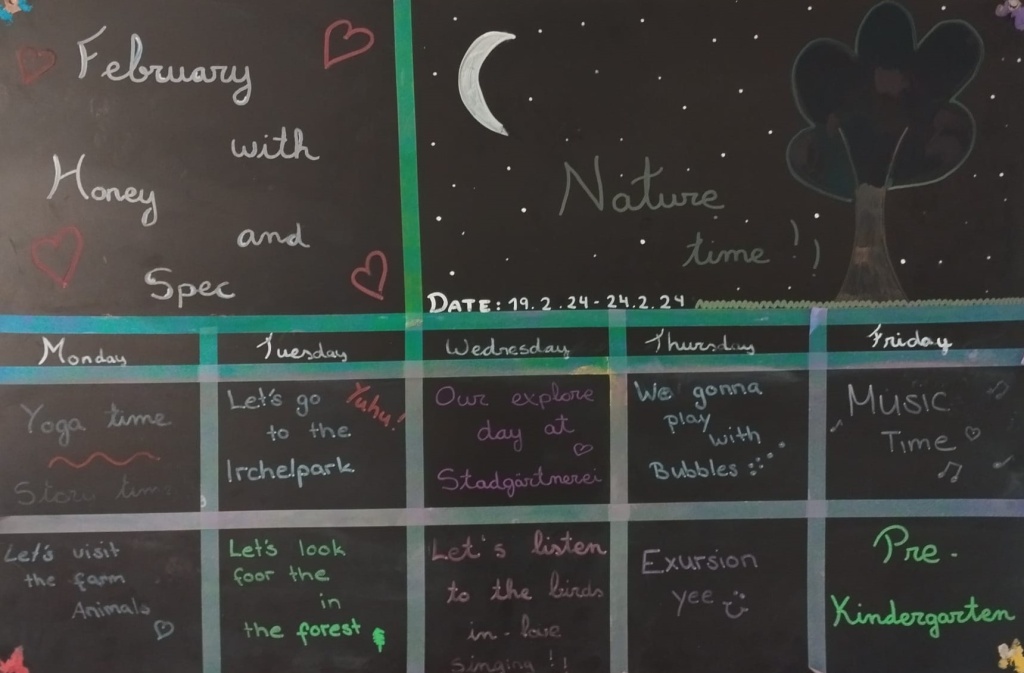 February
with
Honey
and
Spec
Nature
time !!
DATE: 19.2.24-24.2.24
Monday
Tuesday
Wednesday
Thursday
Friday
Yoga time
Story time
Let's go
to the
Irchelpark
Yuhu!
Our explore
day at
Stadgärtnerei
We gonna
play
with
Bubbles
Music
Time
Let's visit
the farm
Animals
Let's look
foor the
in
the forest
Let's listen
to the birds
in-love
singing !!
Exursion
yee
Pre-
Kindergarten